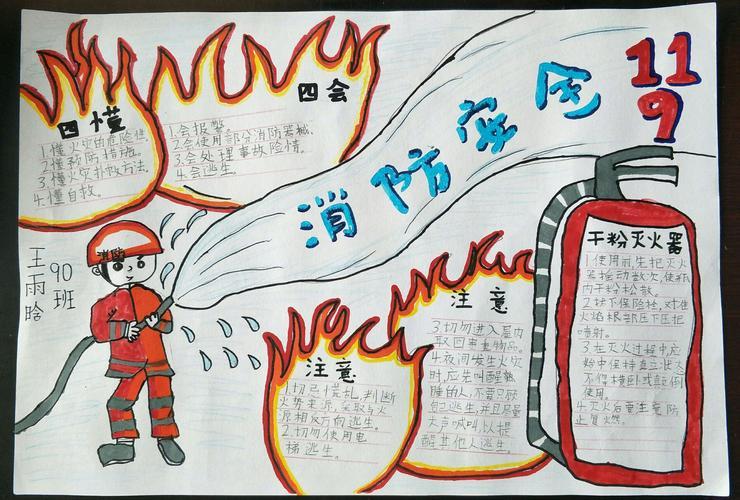 四懂
1.懂火灾的危险性.
2.懂预防措施.
3.懂火灾扑救方法.
4.懂自救。
四会
1.会报警
2.会使用部分消防器械.
3.会处理事故险情.
4.会逃生.
消防安全
119
消防
王雨晗
90班
注意
1.切忌慌乱,判断
火势来源,采取与火
源相反方向逃生。
2.切勿使用电
梯逃生。
注意
3.切勿进入屋内
取回贵重物品。
4.夜间发生火灾
时,应先叫醒熟
睡的人,不要只顾
自己逃生,并且尽量
大声喊叫,以提
醒其他人逃生。
干粉灭火器
1.使用前,先把灭火
器摇动数次,使瓶
内干粉松散.
2.拔下保险栓,对准
火焰根部压下压把
喷射。
3.在灭火过程中,应
始中保持直立状态
不得横卧或颠倒
使用。
4.灭火后要注意防
止复燃。